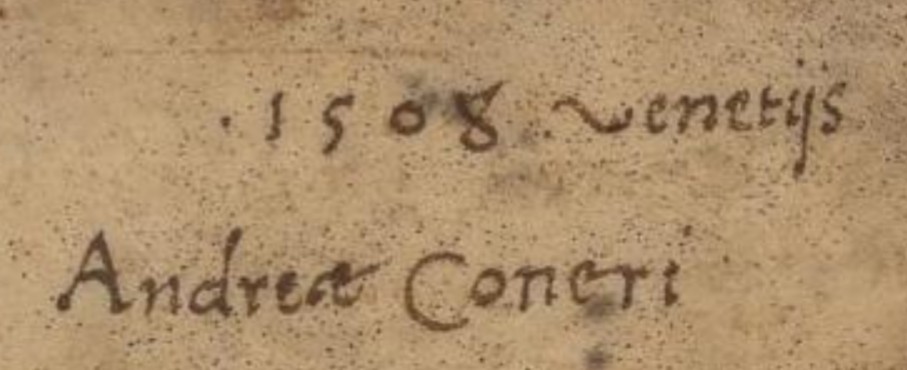 . 1508 Venetijs
Andreæ Coneri